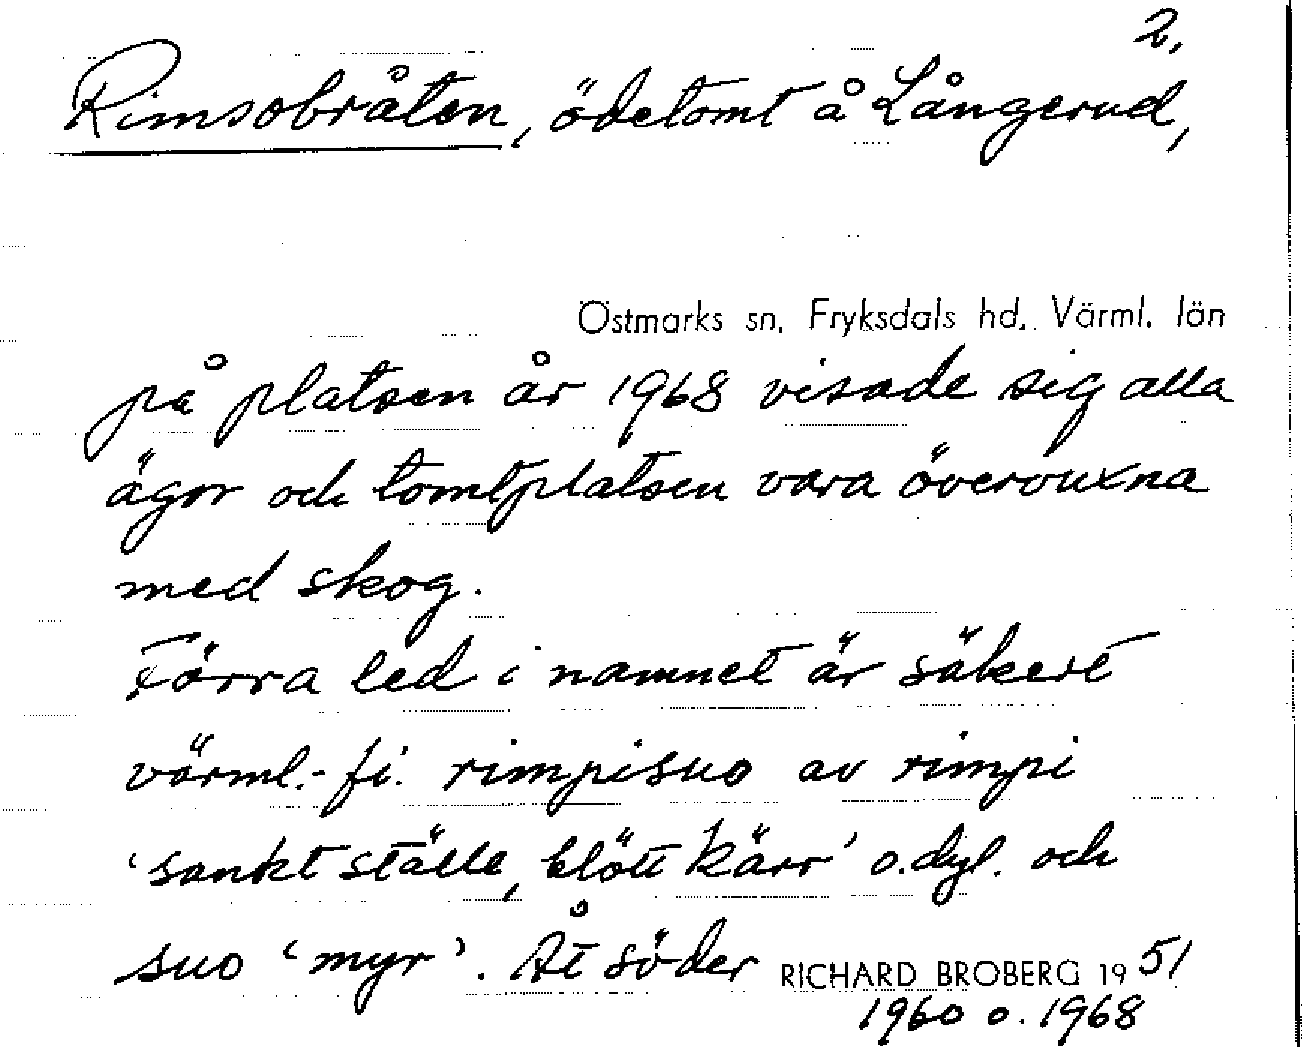 2.
Rimsobråten, ödetomt å Långerud,
Östmarks sn. Fryksdals hd. Värml. län
på platsen år 1968 visade sig alla
ägor och tomtplatsen vara övervuxna
med skog.
Förra led i namnet är säkert
värml.-fi. rimpisuo av rimpi
'sankt ställe, blött kärr' o.dyl. och
suo 'myr'. Åt söder
RICHARD BROBERG 1951
1960 o. 1968